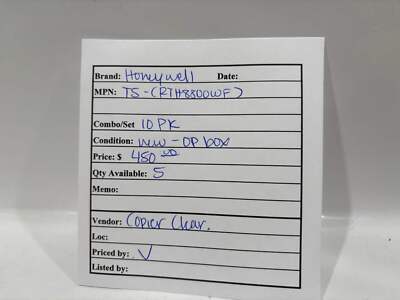 Brand: Honeywell Date:
MPN: TS-(RTH8800WF)
Combo/Set 10 PK
Condition: - OP box
Price: $ 480
Qty Available: 5
Memo:
Vendor: Copier Clear.
Loc:
Priced by: V
Listed by: